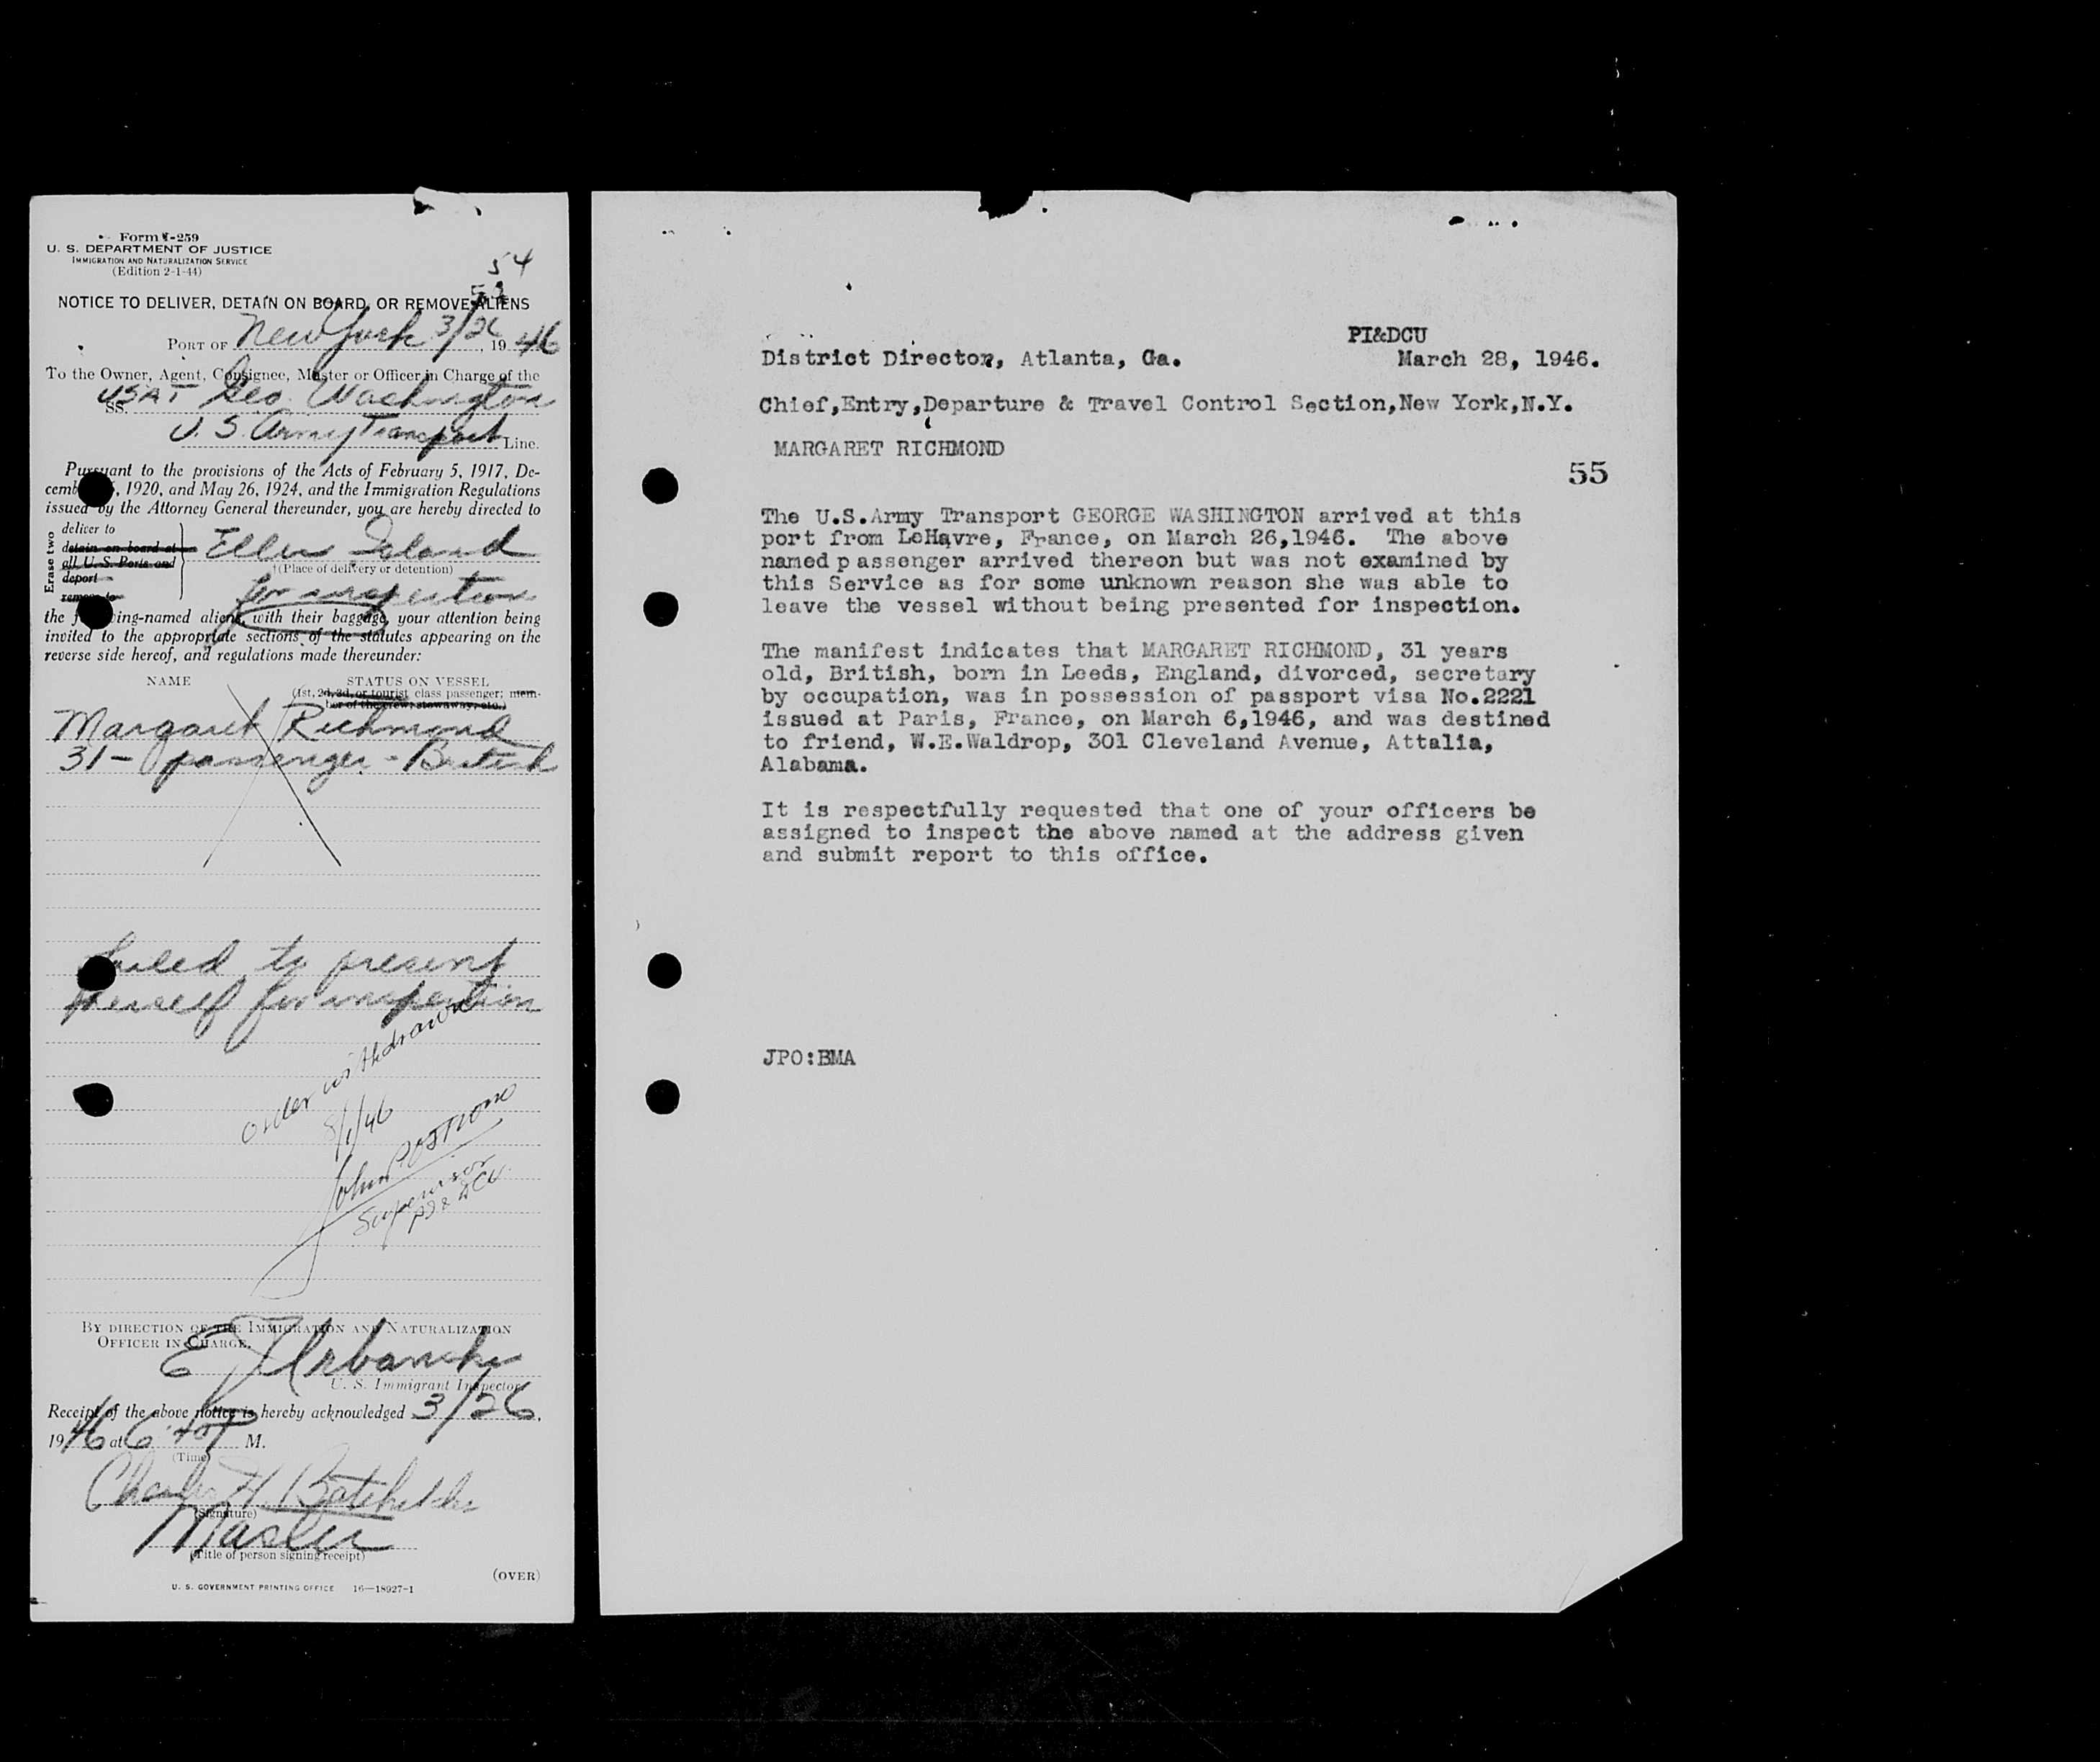 Form I-259
U. S. DEPARTMENT OF JUSTICE
IMMIGRATION AND NATURALIZATION SERVICE
(Edition 2-1-44)
54
NOTICE TO DELIVER, DETAIN ON BOARD, OR REMOVE ALIENS
PORT OF New York 3/26, 1946
To the Owner, Agent, Consignee, Master or Officer in Charge of the
SS. USAT Geo. Washington
U.S. Army Transport Line.
Pursuant to the provisions of the Acts of February 5, 1917, De-
cemb , 1920, and May 26, 1924, and the Immigration Regulations
issued by the Attorney General thereunder, you are hereby directed to
Erase two
deliver to
detain on board at
all U. S. Ports and
deport
remove to
Ellis Island
†(Place of delivery or detention)
for inspection
the f ing-named aliens, with their baggage, your attention being
invited to the appropriate sections of the statutes appearing on the
reverse side hereof, and regulations made thereunder:
NAME STATUS ON VESSEL
(1st, 2d, 3d, or tourist class passenger; mem-
ber of the crew; stowaway, etc.)
Margaret Richmond
31 - passenger - British
Failed to present
herself for inspection
Order withdrawn
8/1/46
John
Supervisor
PI&DCU
BY DIRECTION OF THE IMMIGRATION AND NATURALIZATION
OFFICER IN CHARGE.
E J Urbanski
U. S. Immigrant Inspector
Receipt of the above notice is hereby acknowledged 3/26,
1946 at 6:40 P M.
(Time)
Charles H. Batchelder
(Signature)
Master
(Title of person signing receipt)
(OVER)
U. S. GOVERNMENT PRINTING OFFICE 16—18927-1
PI&DCU
District Director, Atlanta, Ga. March 28, 1946.
Chief,Entry,Departure & Travel Control Section,New York,N.Y.
MARGARET RICHMOND
55
The U.S.Army Transport GEORGE WASHINGTON arrived at this
port from LeHavre, France, on March 26,1946. The above
named passenger arrived thereon but was not examined by
this Service as for some unknown reason she was able to
leave the vessel without being presented for inspection.
The manifest indicates that MARGARET RICHMOND, 31 years
old, British, born in Leeds, England, divorced, secretary
by occupation, was in possession of passport visa No.2221
issued at Paris, France, on March 6,1946, and was destined
to friend, W.E.Waldrop, 301 Cleveland Avenue, Attalia,
Alabama.
It is respectfully requested that one of your officers be
assigned to inspect the above named at the address given
and submit report to this office.
JPO:BMA